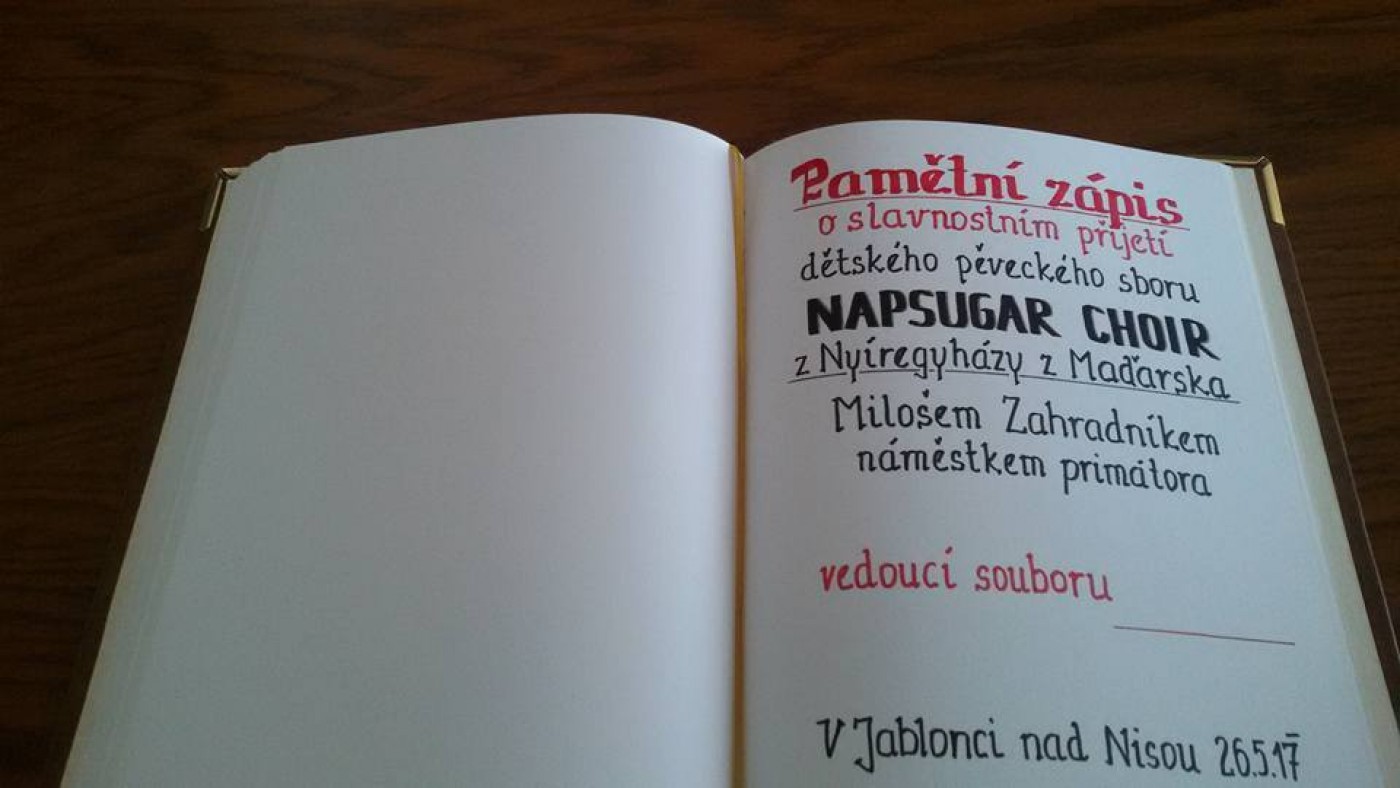 Pamětní zápis
o slavnostním přijetí
dětského pěveckého sboru
NAPSUGAR CHOIR
z Nyíregyházy z Maďarska
Milošem Zahradníkem
náměstkem primátora
vedoucí souboru
V Jablonci nad Nisou 26.5.17